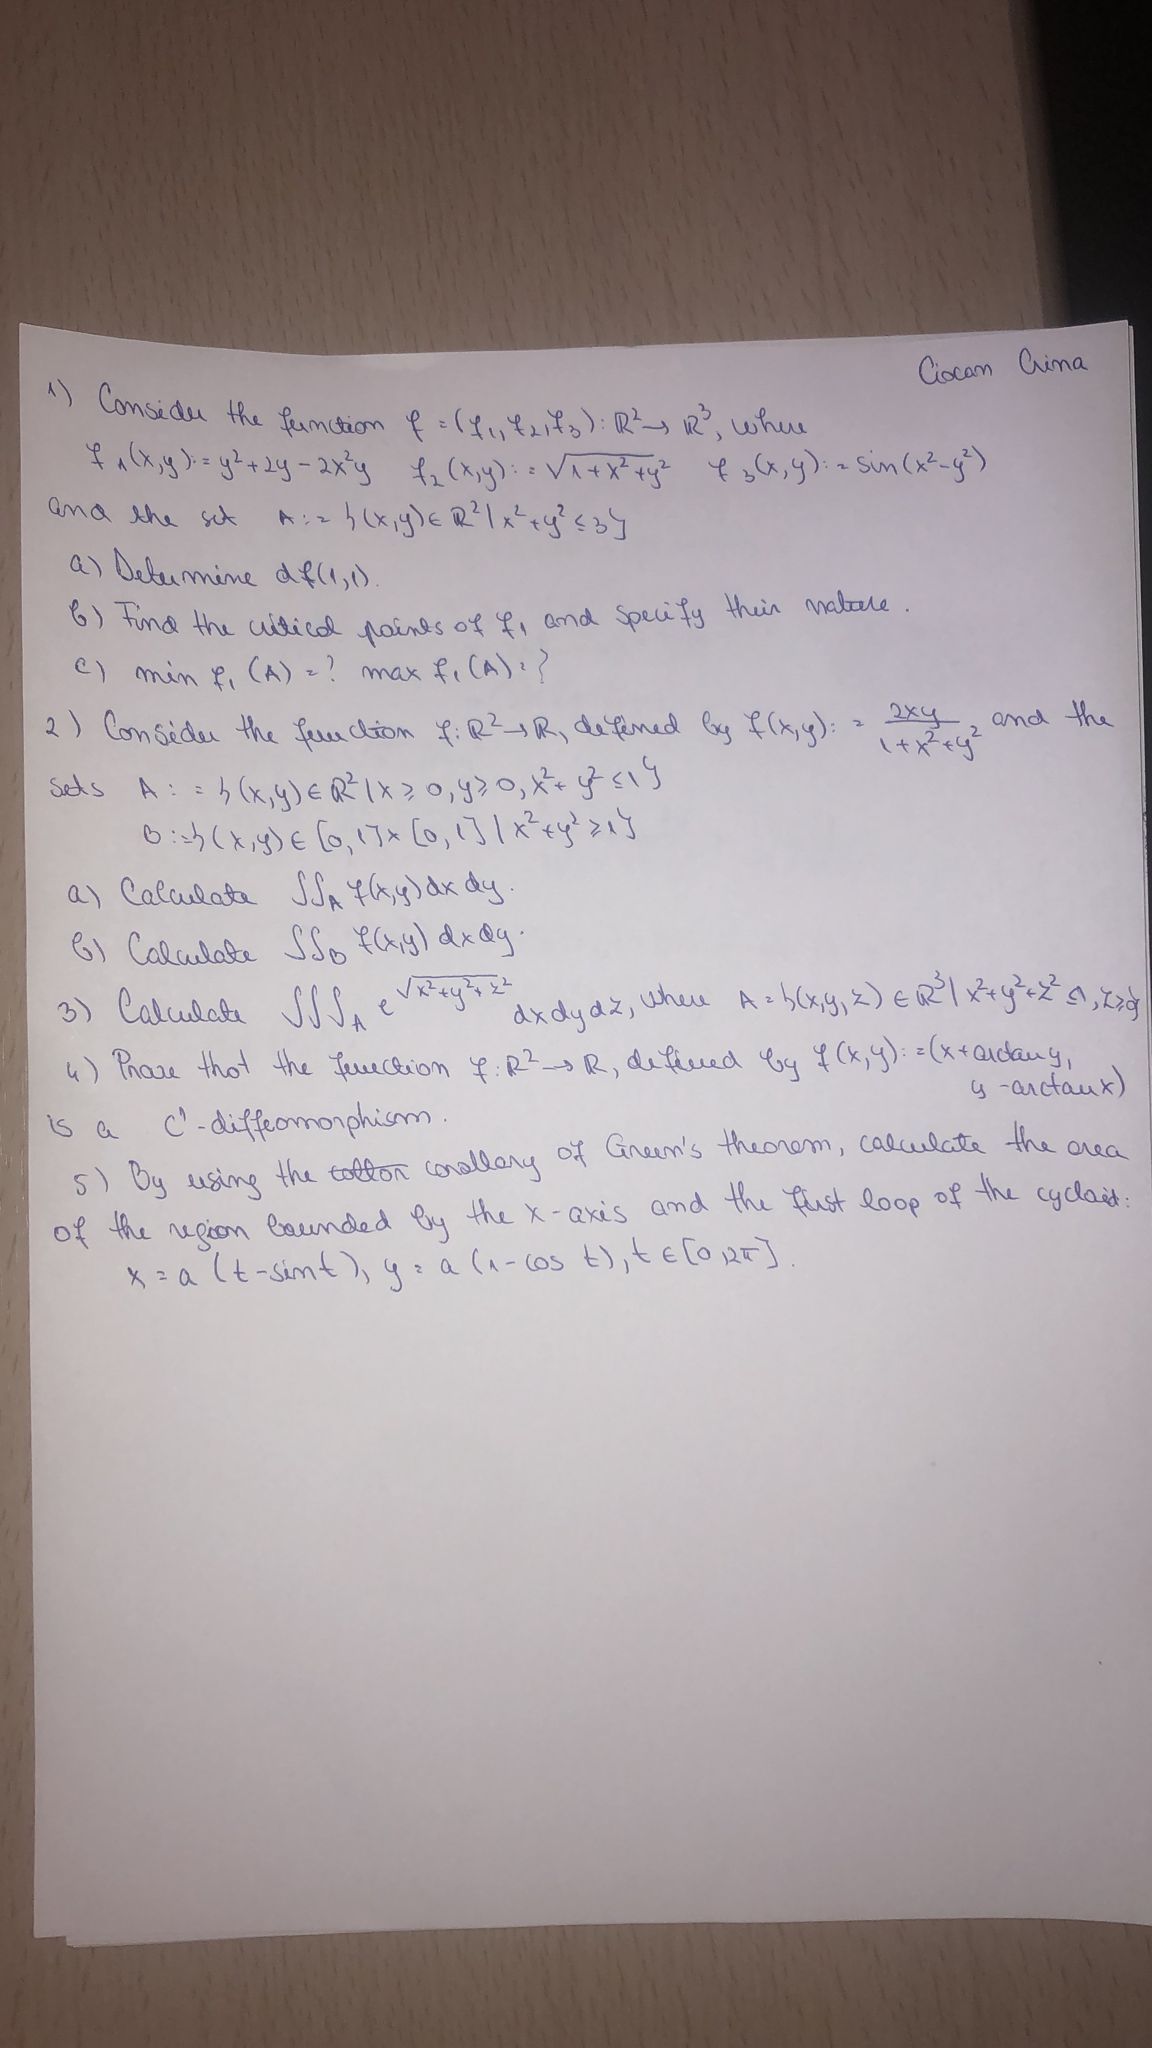 Ciocan Crina
1) Consider the function f = (f₁, f₂, f₃): ℝ² → ℝ³, where
f₁(x,y) := y² + 2y - 2x²y f₂(x,y) := √(1+x²+y²) f₃(x,y) := sin(x²-y²)
and the set A := {(x,y) ∈ ℝ² | x²+y² ≤ 3}
a) Determine df(1,1).
b) Find the critical points of f₁ and specify their nature.
c) min f₁(A) = ? max f₁(A) = ?
2) Consider the function f: ℝ² → ℝ, defined by f(x,y) := 2xy/(1+x²+y²), and the
sets A := {(x,y) ∈ ℝ² | x ≥ 0, y ≥ 0, x²+y² ≤ 1}
B := {(x,y) ∈ [0,1] × [0,1] | x²+y² ≥ 1}
a) Calculate ∫∫_A f(x,y) dx dy.
b) Calculate ∫∫_B f(x,y) dx dy.
3) Calculate ∫∫∫_A e^√(x²+y²+z²) dx dy dz, where A = {(x,y,z) ∈ ℝ³ | x²+y²+z² ≤ 1, z ≥
4) Prove that the function f: ℝ² → ℝ, defined by f(x,y) := (x + arctan y,
y - arctan x)
is a C¹-diffeomorphism.
5) By using the corollary of Green's theorem, calculate the area
of the region bounded by the x-axis and the first loop of the cycloid:
x = a (t - sin t), y = a (1 - cos t), t ∈ [0,2π].